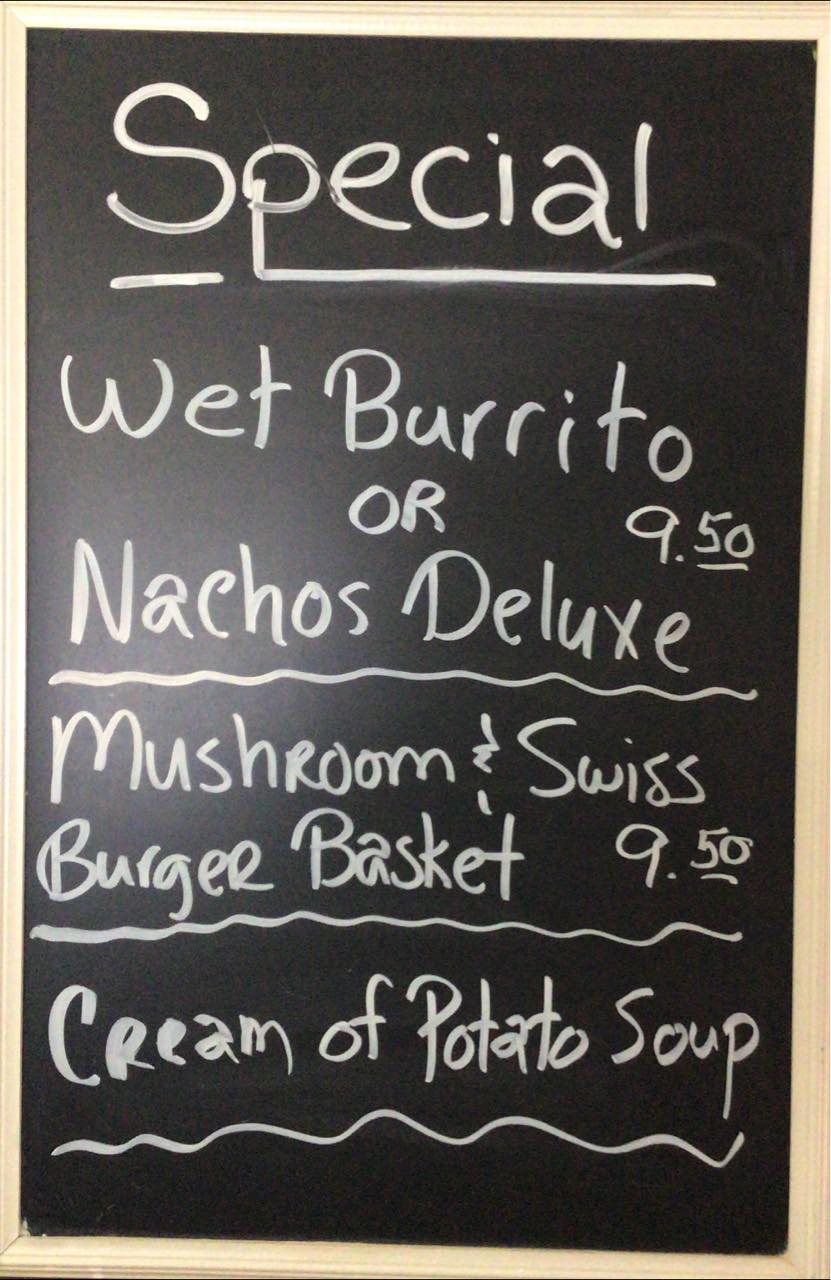 Special
Wet Burrito
OR 9.50
Nachos Deluxe
Mushroom & Swiss
Burger Basket 9.50
Cream of Potato Soup